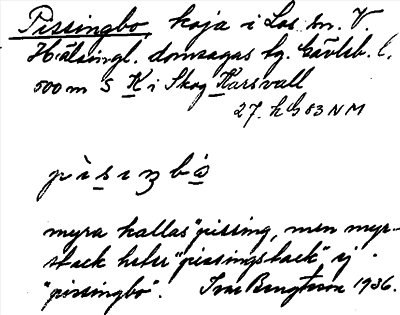 Pissingbo, koja i Los sn. V.
Hälsingl. domsagas tg. Gävleb. l.
500 m S K i Skog Karsvall
27. h G 83 NM
pìsıŋbò
myra kallas "pissing, men myr-
stack heter "pissingstack", ej
"pissingbo". Ivar Bengtsson 1936.